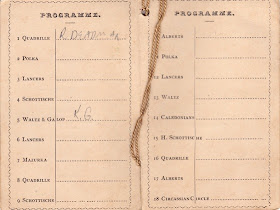 PROGRAMME.
1 QUADRILLE R. DEADMAN
2 POLKA
3 LANCERS
4 SCHOTTISCHE
5 WALTZ & GALOP K.G
6 LANCERS
7 MAZURKA
8 QUADRILLE
9 SCHOTTISCHE
PROGRAMME.
ALBERTS
POLKA
LANCERS
WALTZ
14 CALEDONIANS
15 H. SCHOTTISCHE
16 QUADRILLE
17 ALBERTS
18 CIRCASSIAN CIRCLE